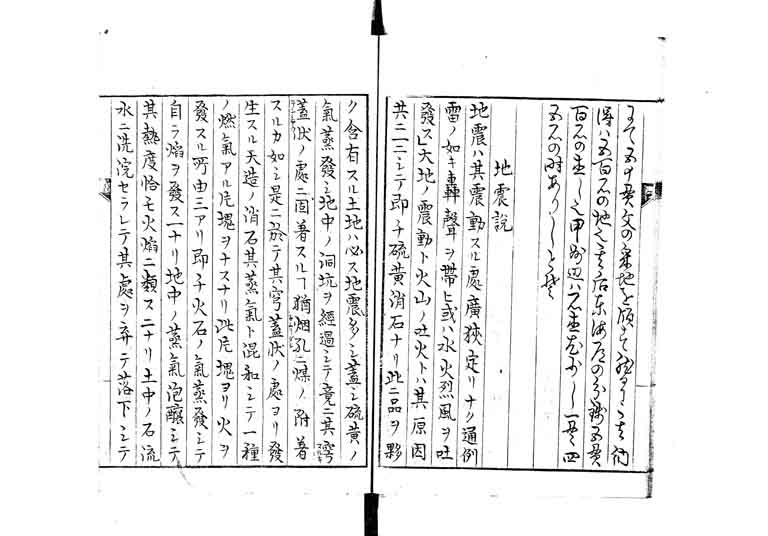 地震説
地震ハ其震動スル處廣狹定リナク通例
雷ノ如キ轟聲ヲ帶ヒ或ハ水火烈風ヲ吐
發ス大地ノ震動ト火山ノ吐火トハ其原因
共ニ一ニシテ即チ硫黄消石ナリ此二品ヲ夥
ク含有スル土地ハ必ス地震多シ蓋シ硫黄ノ
氣蒸發シ地中ノ洞坑ヲ經過シテ竟ニ其穹
蓋状ノ處ニ固著スルヿ猶烟孔ニ煤ノ附著
スルカ如シ是ニ於テ其穹蓋状ノ處ヨリ發
生スル天造ノ消石其蒸氣ト混和シテ一種
ノ燃氣アル片塊ヲナスナリ此片塊ヨリ火ヲ
發スル所由三アリ即チ火石ノ氣蒸發シテ
自ラ焰ヲ發ス一ナリ地中ノ蒸氣泡釀シテ
其熱度恰モ火焰ニ類ス二ナリ土中ノ石流
水ニ洗浣セラレテ其處ヲ弃テ落下シテ